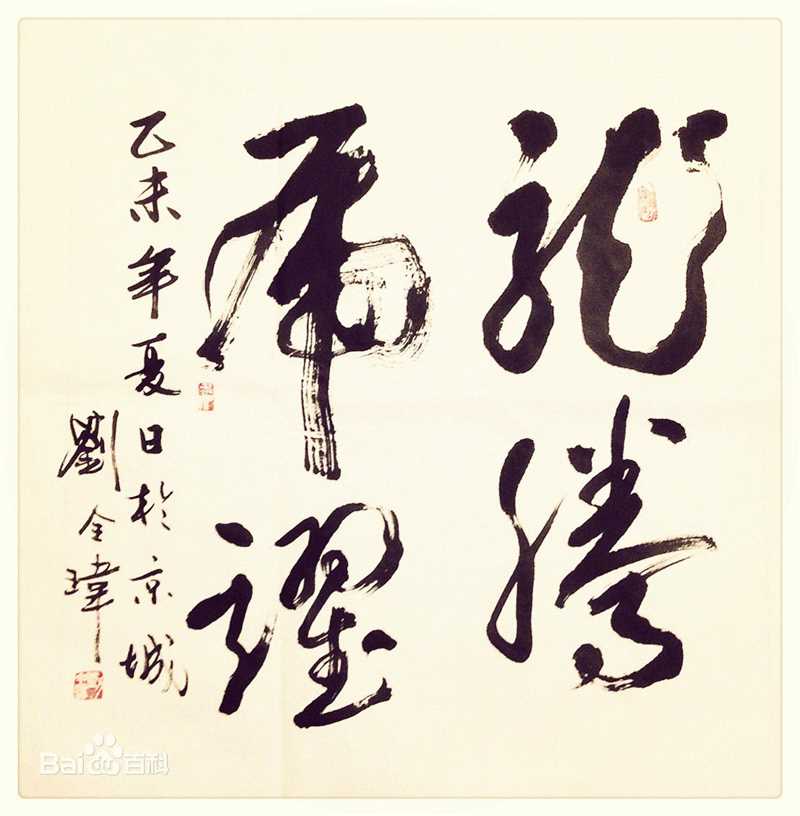 龍騰
虎躍
乙未年夏日於京城
劉全瑋
Bai百科